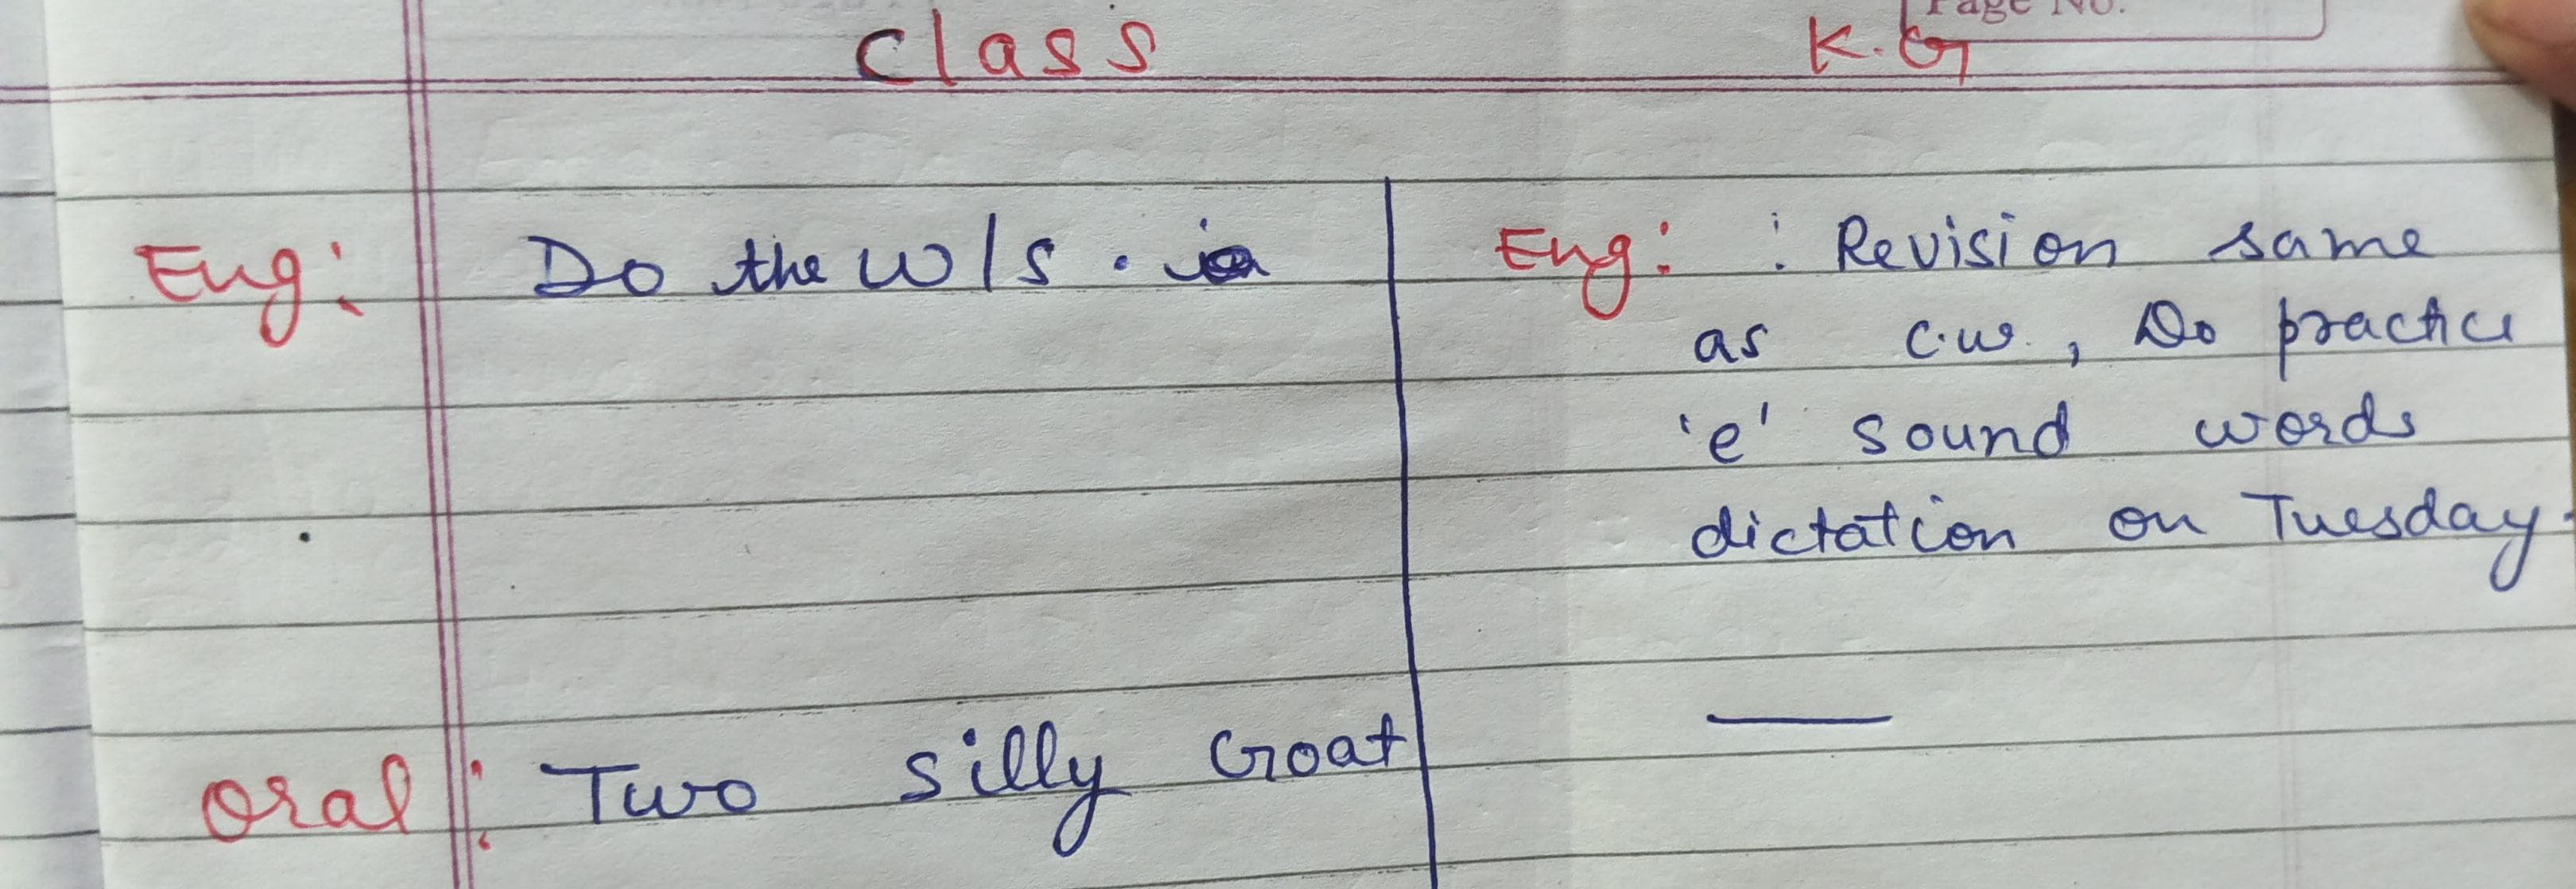 Page No.
Class K.G
Eng: Do the W/S.
Eng: : Revision same
as c.w., Do practice
'e' sound words
dictation on Tuesday.
Oral: Two silly Goat